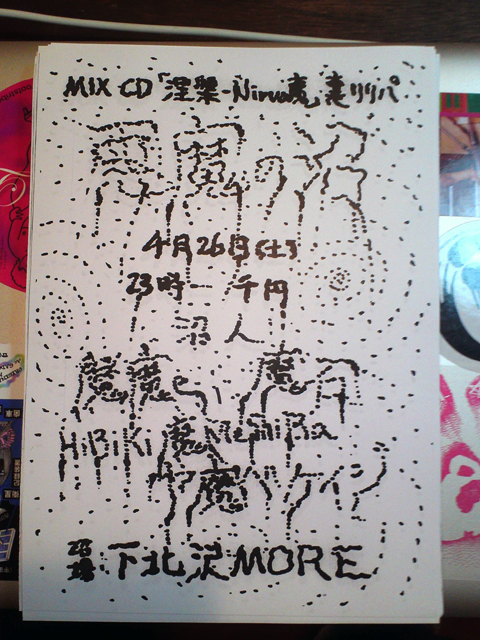 MIX CD「涅槃-Nirva魔」裏リリパ
悪魔の沼
4月26日(土)
23時― 千円
沼人
HiBiKi 魔MeShiBa
ヤ魔ベケイジ
会場 下北沢MORE